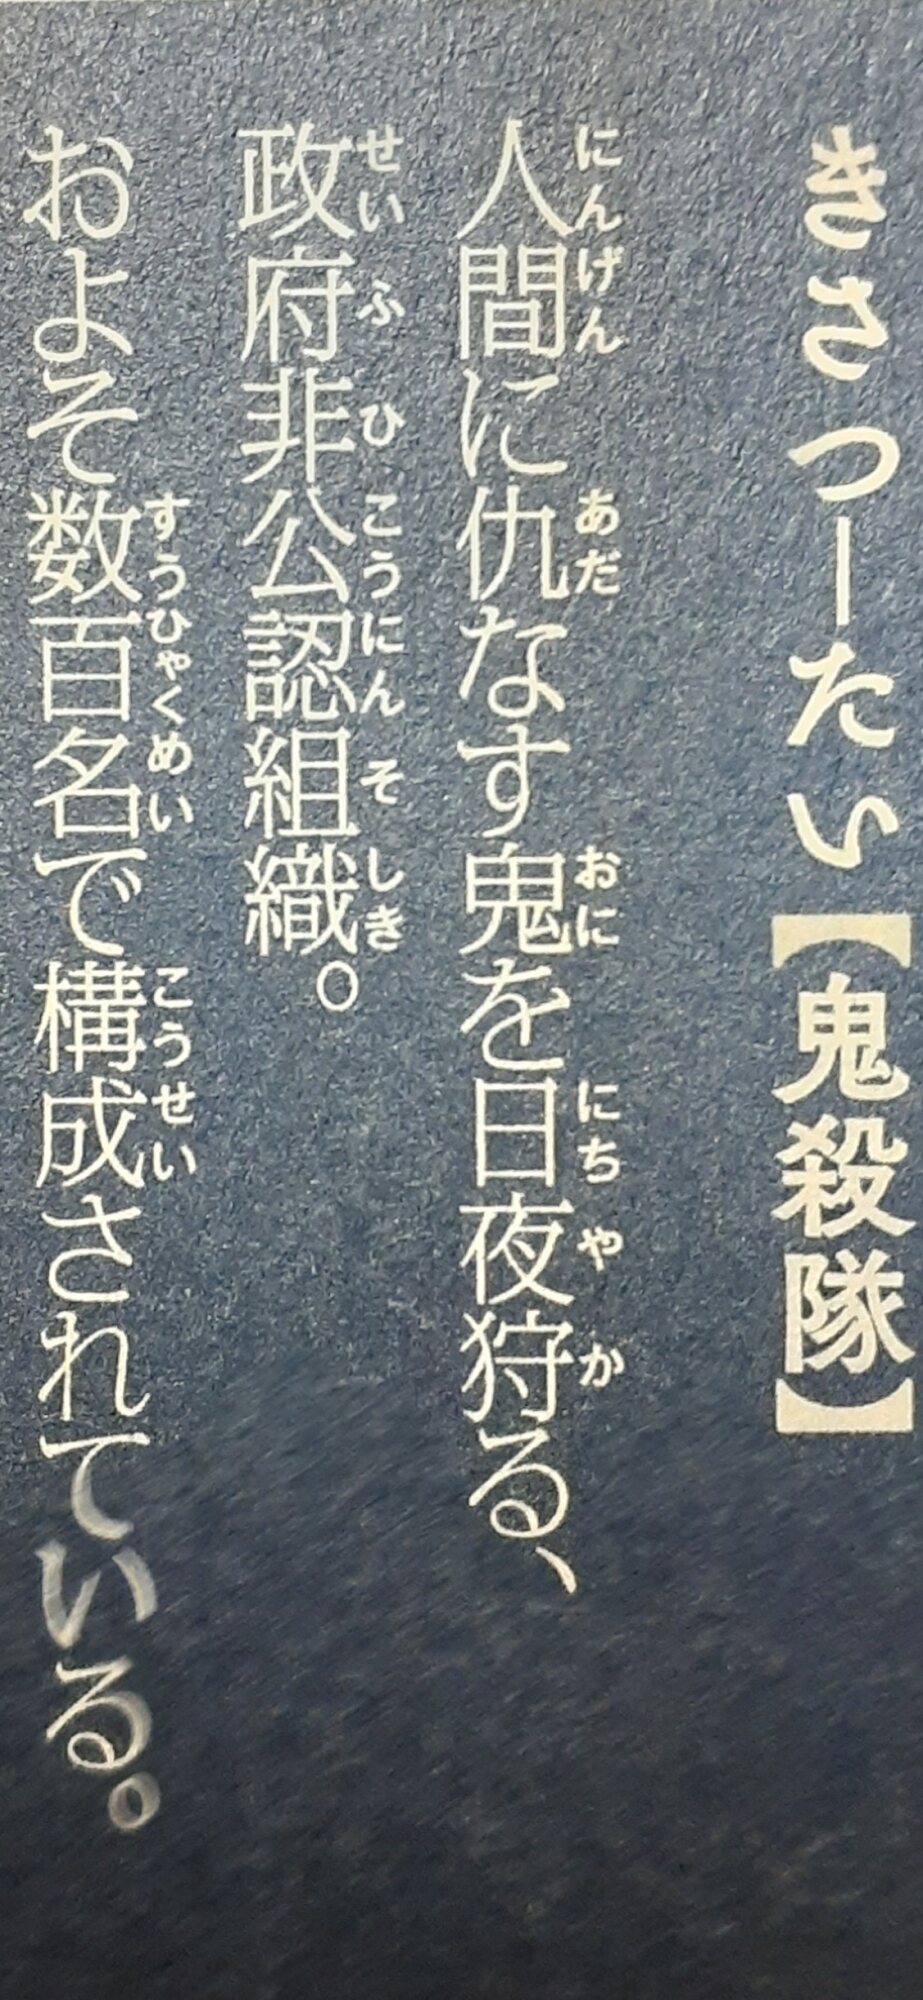 きさつ―たい【鬼殺隊】
人間に仇なす鬼を日夜狩る、
にんげん あだ おに にちやか
政府非公認組織。
せいふひこうにんそしき
およそ数百名で構成されている。
すうひゃくめい こうせい